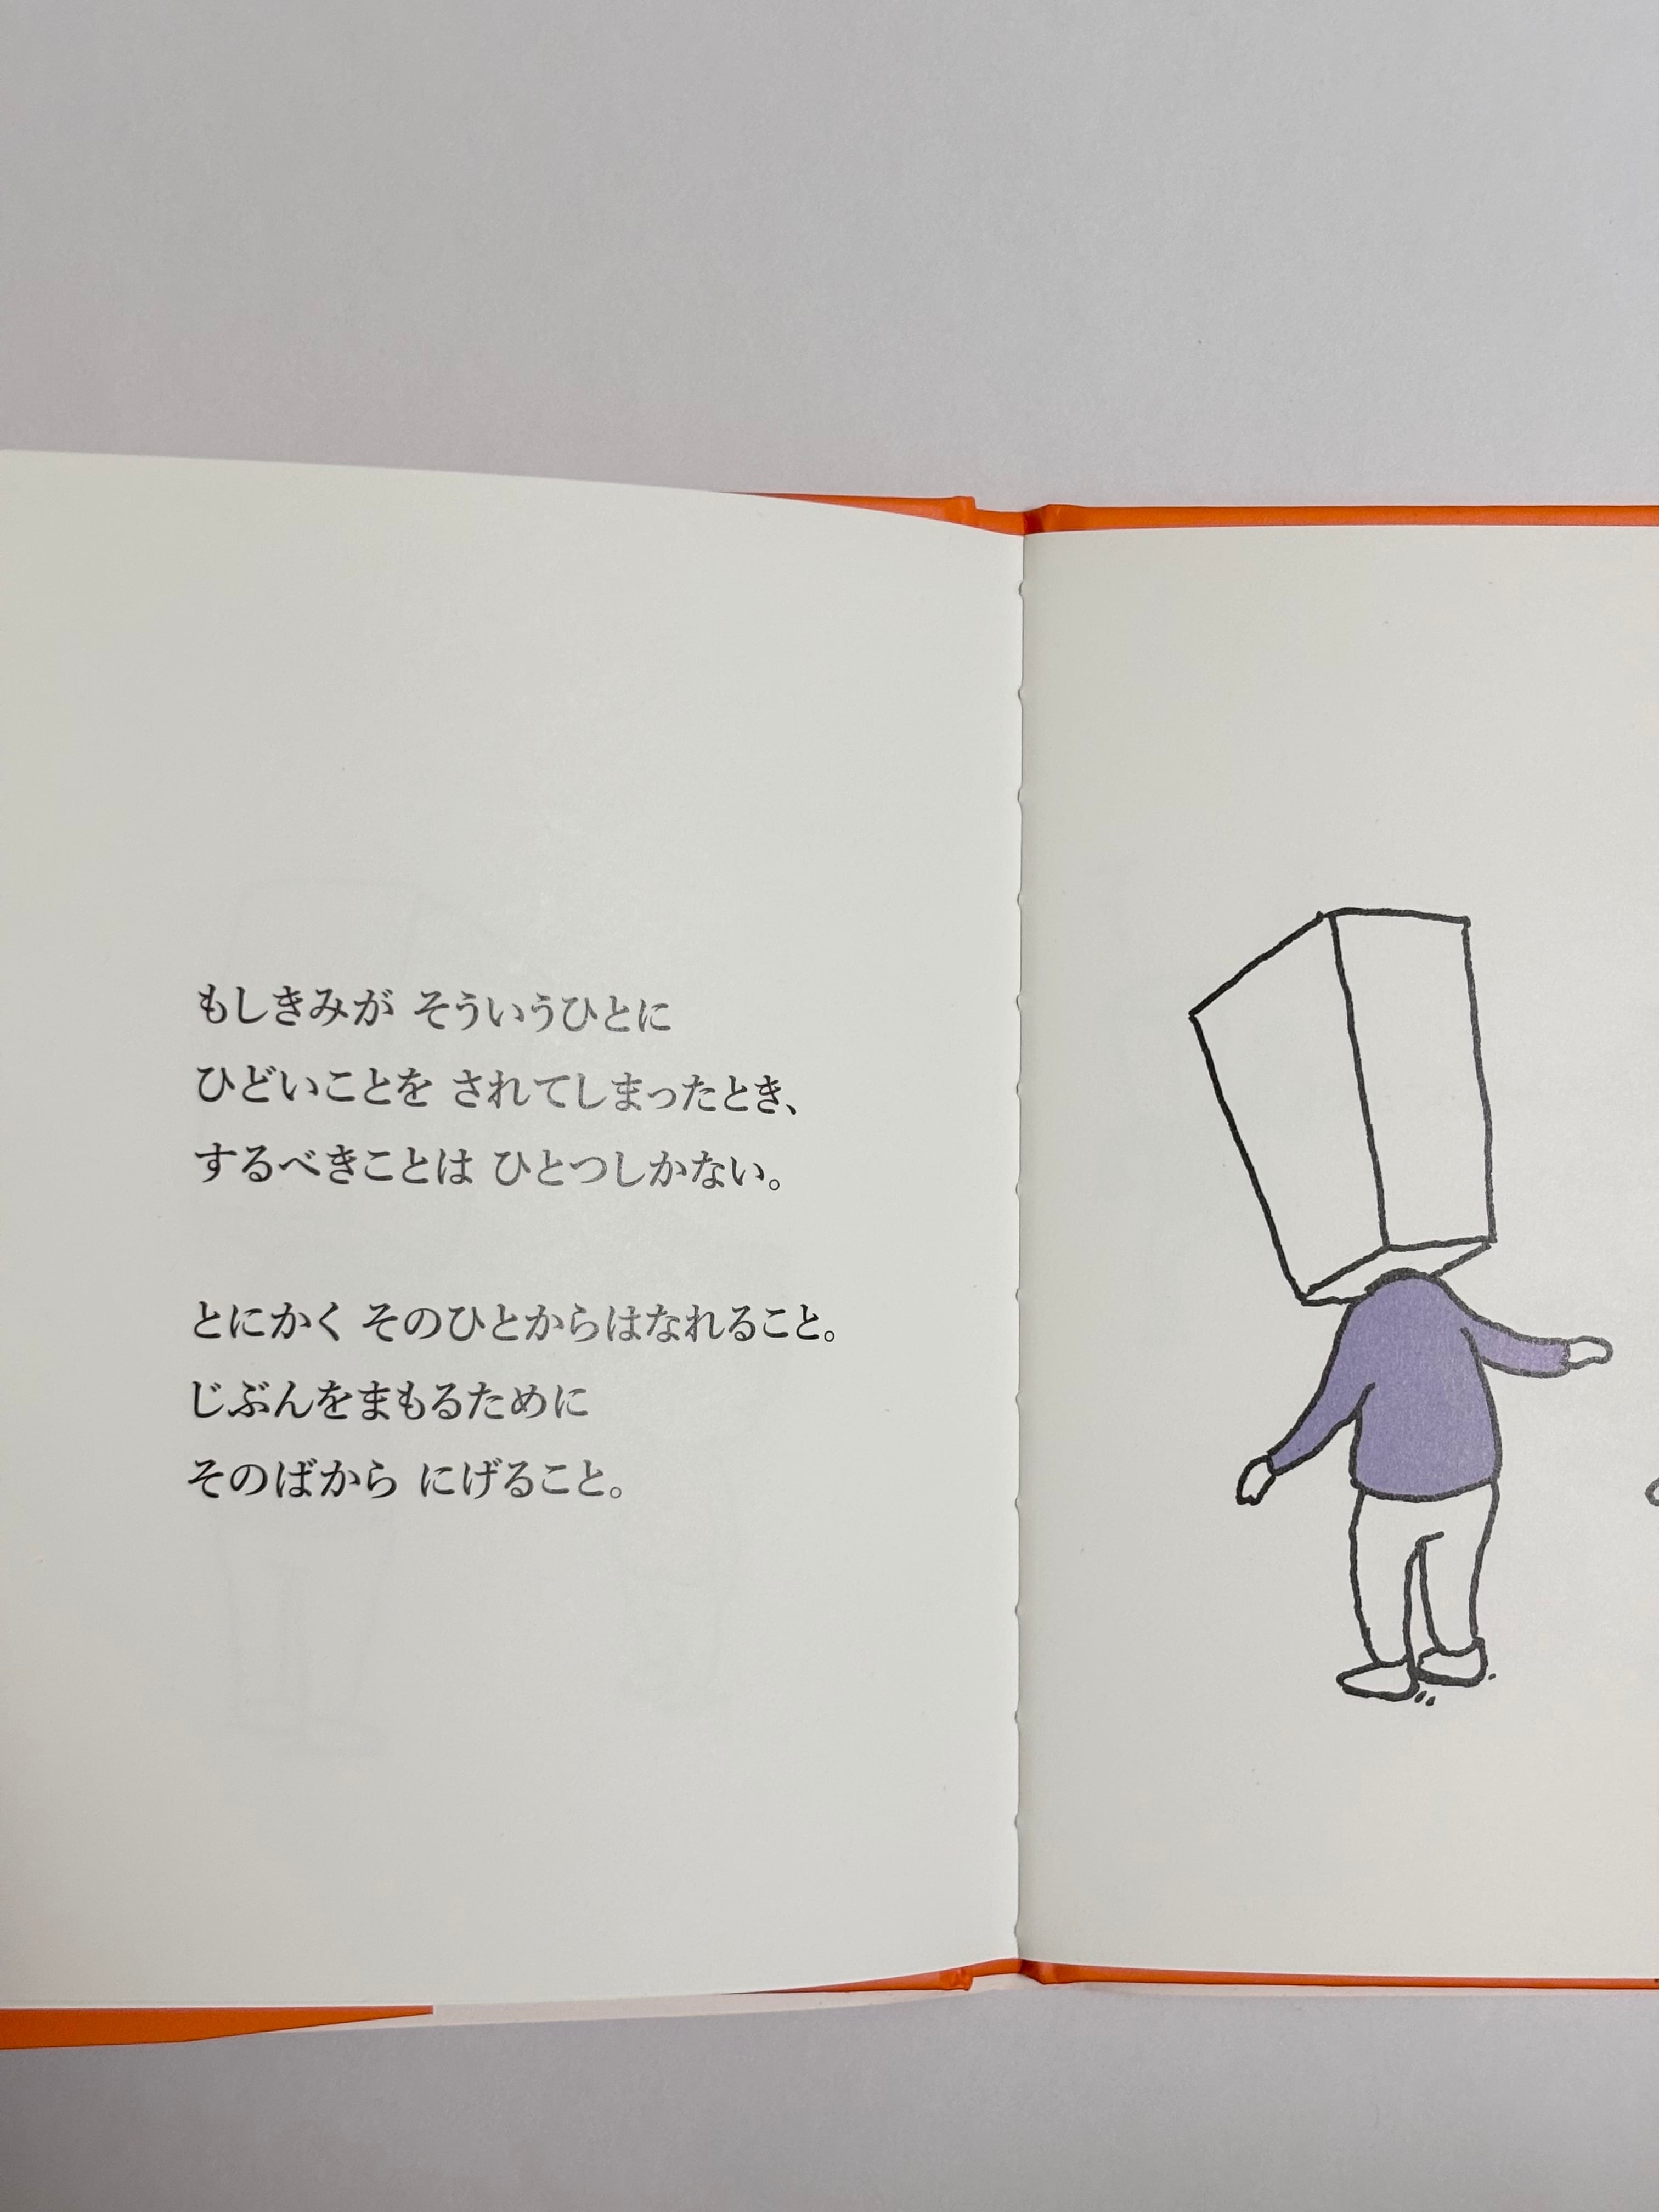 もしきみが そういうひとに
ひどいことを されてしまったとき、
するべきことは ひとつしかない。
とにかく そのひとからはなれること。
じぶんをまもるために
そのばから にげること。